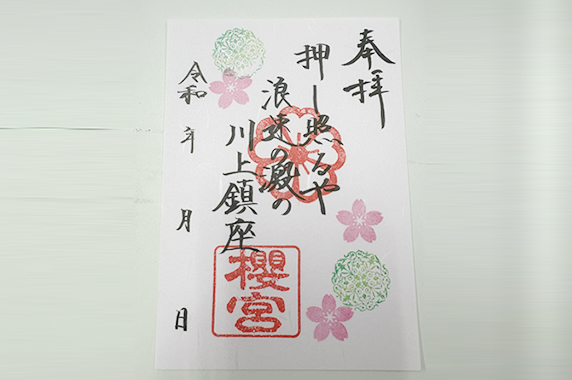 奉拝
押し照るや
浪速の瀧の
川上鎮座
櫻宮
令和 年 月 日